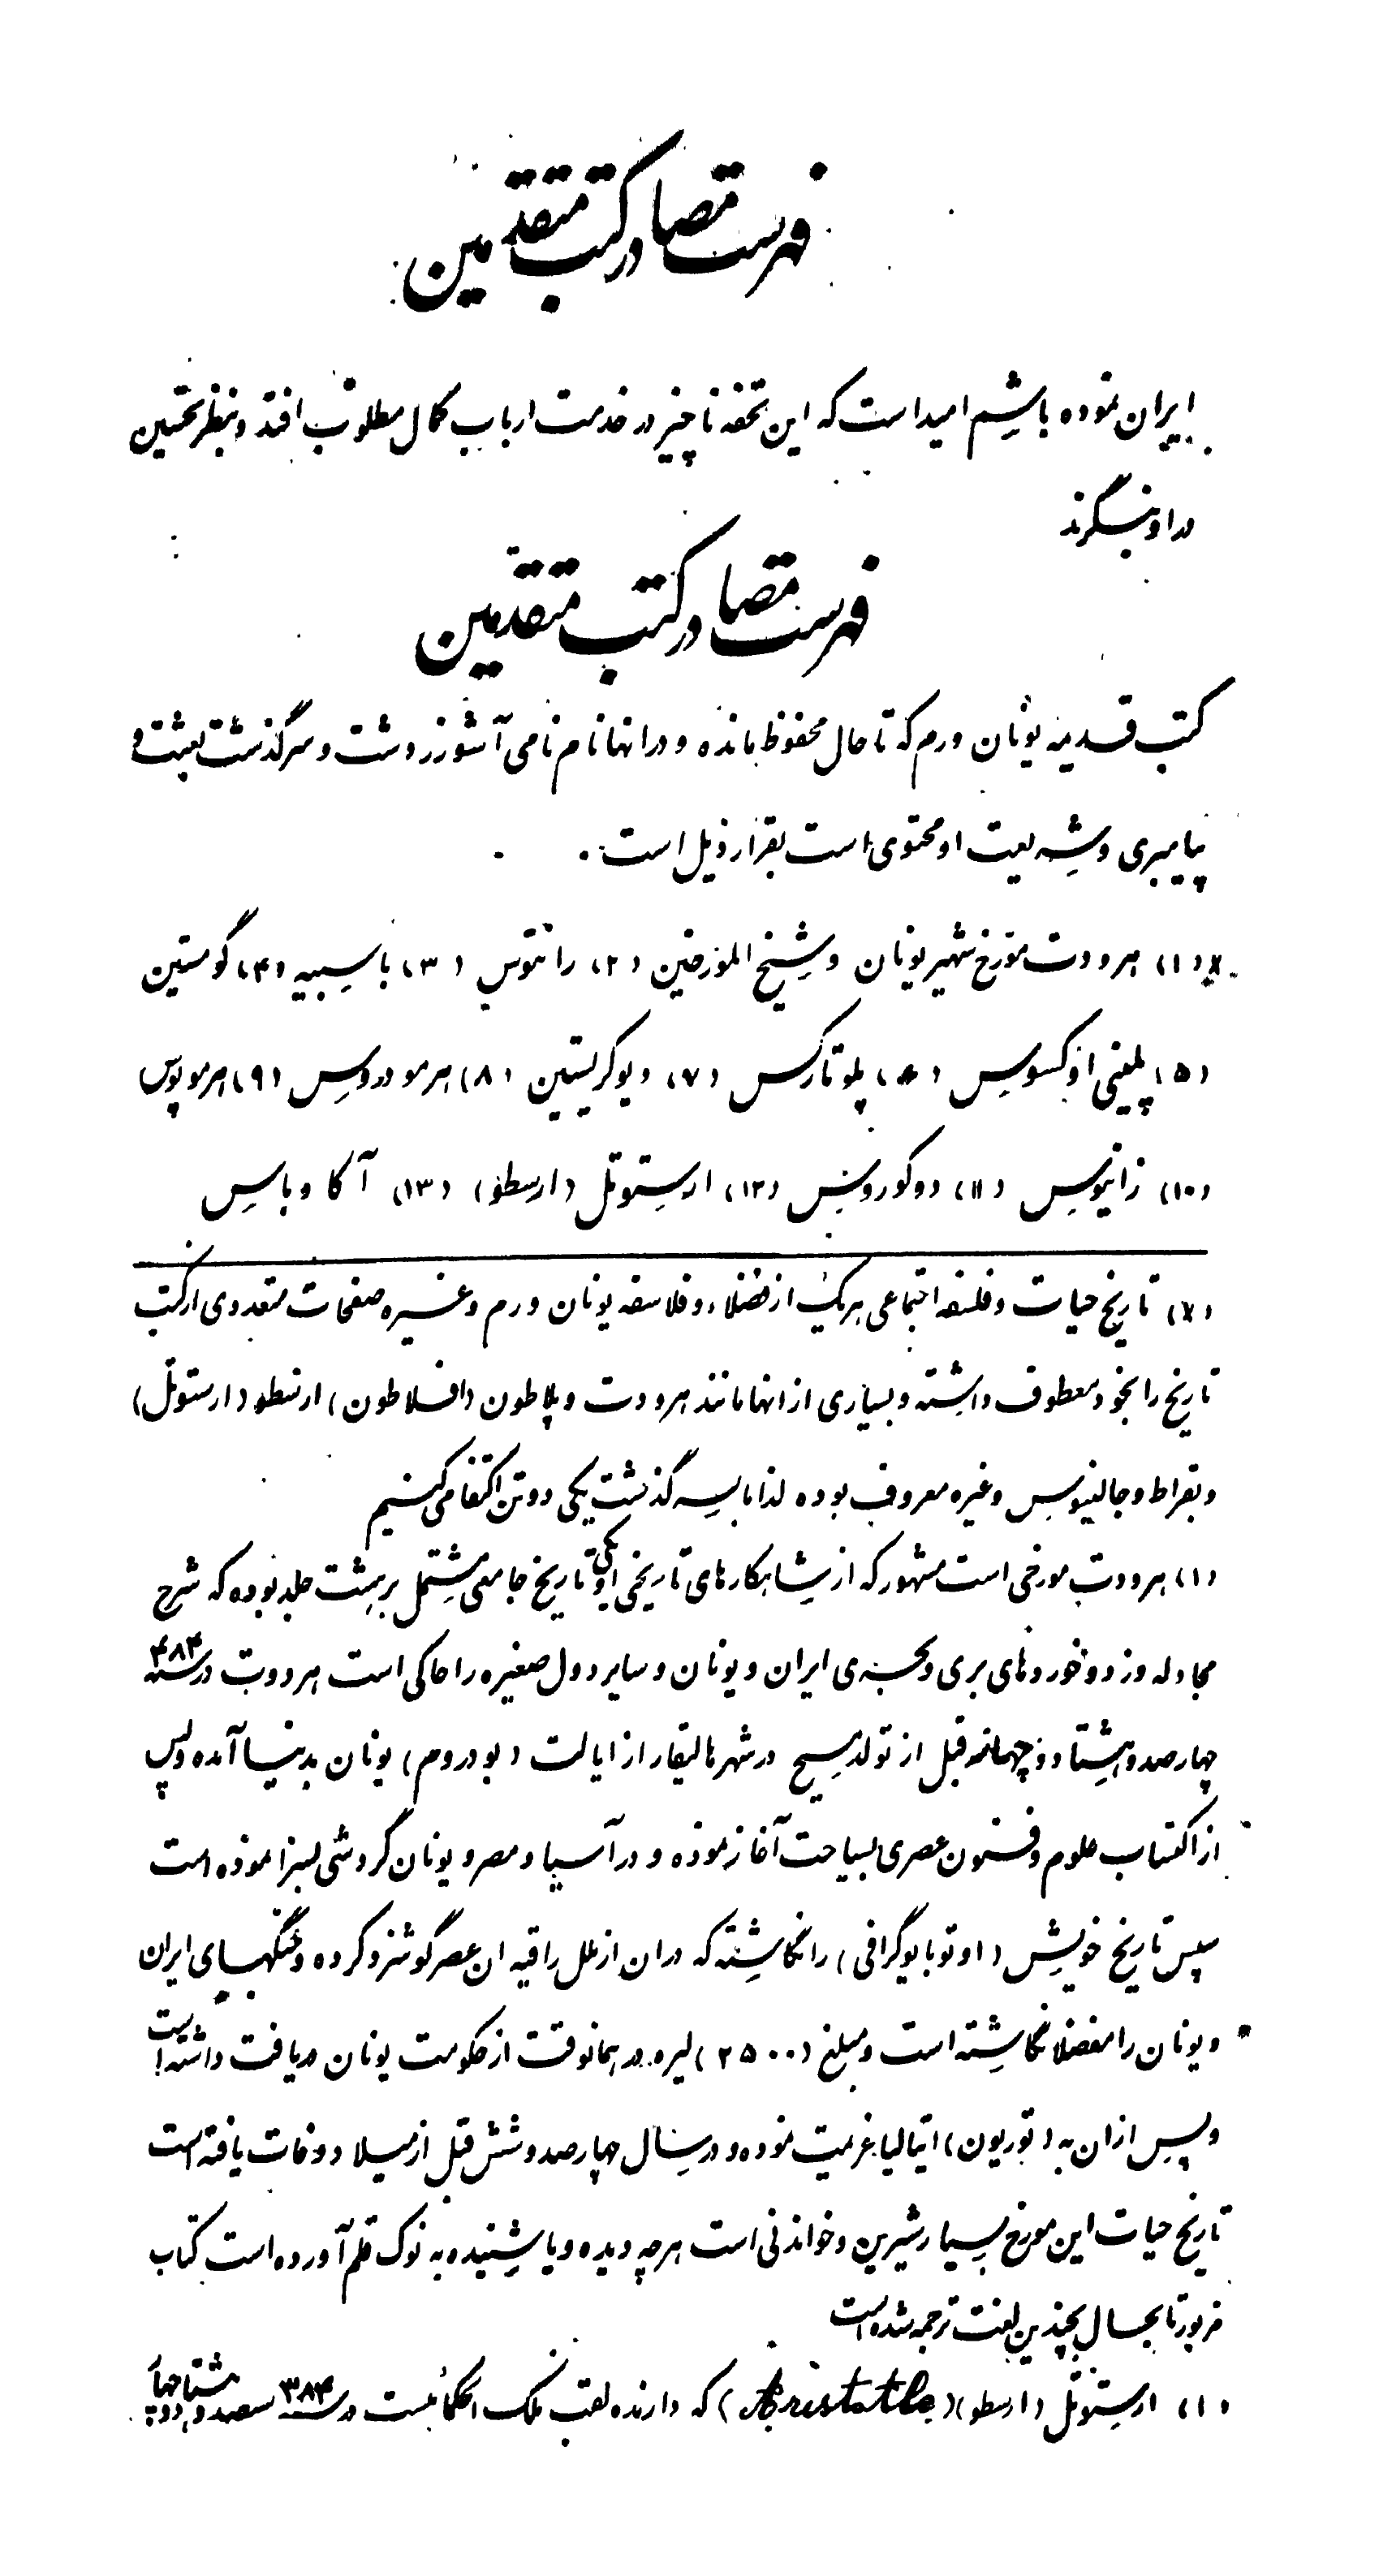 فهرست قصا در کتب متقدمین
ایران نموده باشیم امید است که این تحفه ناچیز در خدمت ارباب کمال مطلوب افتد و بنظر تحسین
در او بنگرند
فهرست قصا در کتب متقدمین
کتب قدیمه یونان و رم که تا حال محفوظ مانده و در انها نام نامی آشو زردشت و سرگذشت بعثت و
پیامبری و شریعت او محتوی است بقرار ذیل است.
(۱) هرودت مورخ شهیر یونان و شیخ المورخین (۲) رانتوس (۳) باسیبیه (۴) گوستین
(۵) پلینی اوکسوس (۶) پلوتارکس (۷) دیوکریستین (۸) هرمودروس (۹) هرموپوس
(۱۰) زانیوس (۱۱) دوکورونس (۱۲) ارستوتل (ارسطو) (۱۳) آکاوباس
(x) تاریخ حیات و فلسفه اجتماعی هریک از فضلاء و فلاسفه یونان و رم و غیره صفحات متعددی از کتب
تاریخ را بخود معطوف داشته و بسیاری از انها مانند هرودت و پلاطون (افلاطون) ارسطو (ارستوتل)
و بقراط و جالینوس و غیره معروف بوده لذا بسرگذشت یکی دو تن اکتفا می کنیم
(۱) هرودت مورخی است مشهور که از شاهکارهای تاریخی او یکی تاریخ جامعی مشتمل بر هشت جلد بوده که شرح
مجادله و زد و خوردهای بری و بحری ایران و یونان و سایر دول صغیره را حاکی است هرودت در سنه ۴۸۴
چهارصد و هشتاد و چهار قبل از تولد مسیح در شهر هالیقار از ایالت (بودروم) یونان بدنیا آمده و پس
از اکتساب علوم و فنون عصری بسیاحت آغاز نموده و در آسیا و مصر و یونان گردشی بسزا نموده است
سپس تاریخ خویش (اوتوبایوگرافی) را نگاشته که در ان از ملل راقیه ان عصر گوشزد کرده و جنگهای ایران
و یونان را مفصلا نگاشته است و مبلغ (۲۵۰۰) لیره در همانوقت از حکومت یونان دریافت داشته است
و پس از ان به (توریون) ایتالیا عزیمت نموده و در سال چهارصد و شش قبل از میلاد وفات یافته است
تاریخ حیات این مورخ بسیار شیرین و خواندنی است هرچه دیده و یا شنیده به نوک قلم آورده است کتاب
مزبور تا بحال بچندین لغت ترجمه شده است
(۱) ارستوتل (ارسطو) (Aristotle) که دارنده لقب ملک الحکما است در سنه ۳۸۴ سیصد و هشتاد و چهار